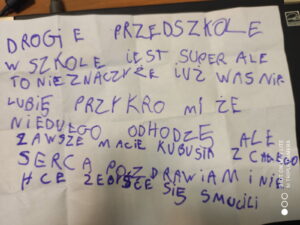 DROGIE PRZEDSZKOLE
W SZKOLE IEST SUPER ALE
TO NIE ZNACZY ŻE IUŻ WAS NIE
LUBIĘ PRZYKRO MI ŻE
NIEDUŁGO ODHODZĘ ALE
ZAWSZE MACIE KUBUSIA Z CAŁEGO
SERCA POZDRAWIAM I NIE
HCE ŻEBYŚCE SIĘ SMUCILI